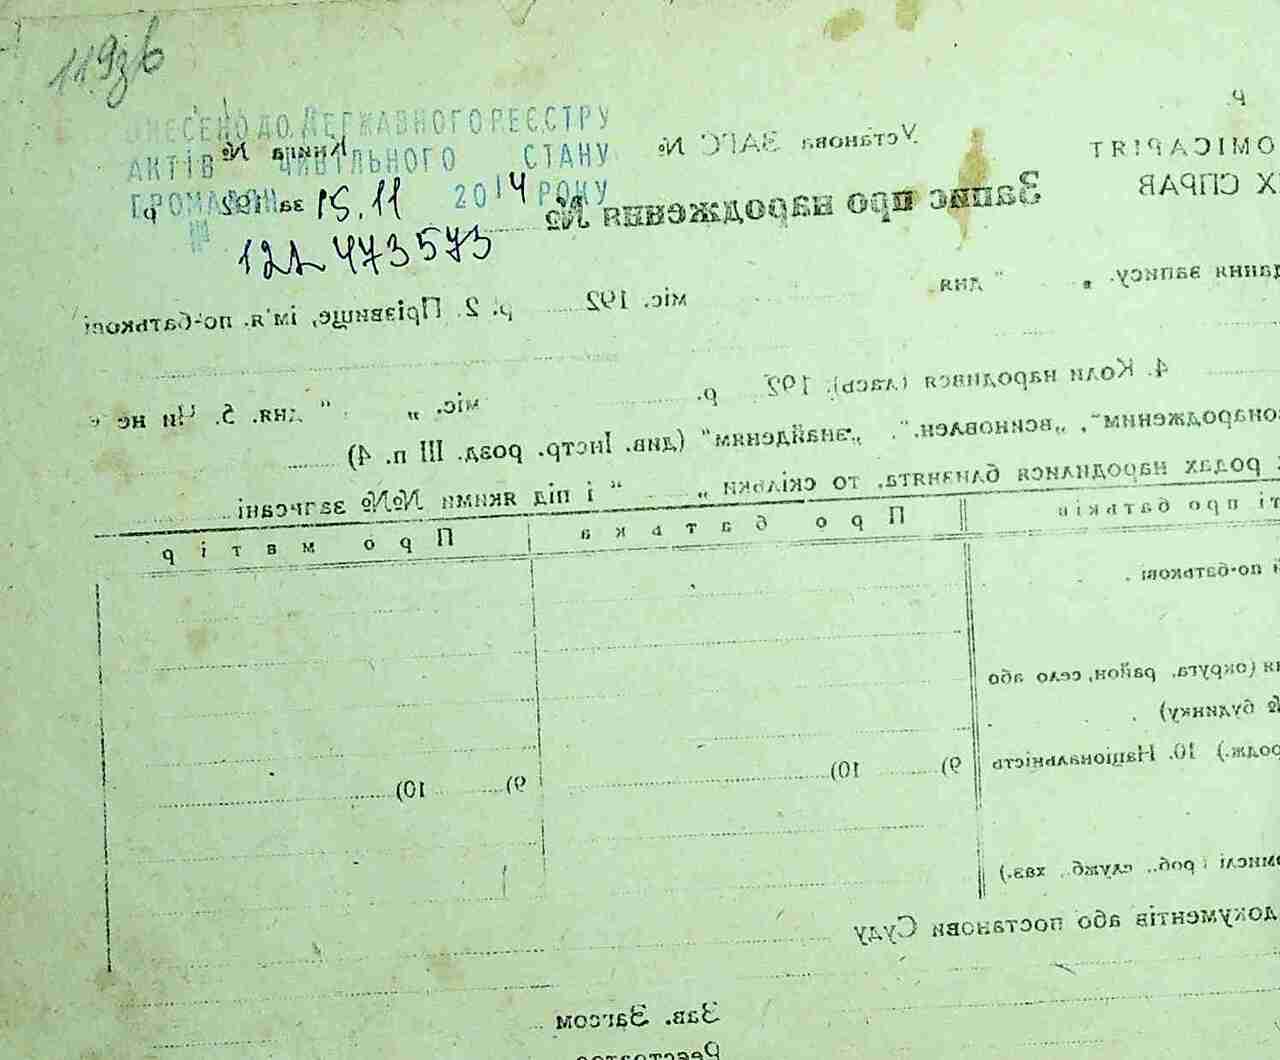 119зв
ВНЕСЕНО ДО ДЕРЖАВНОГО РЕЄСТРУ
АКТІВ ЦИВІЛЬНОГО СТАНУ
ГРОМАДЯН 15.11 2014 РОКУ
№
473573
Р.
ОМІСАРІЯТ
ИХ СПРАВ
Установа ЗАГС № Книга №
за 192 р.
Запис про народження №
дання запису. „ “ дня міс. 192 р. 2. Прізвище, ім'я, по-батькові
4. Коли народився (лась). 192 р. міс. „ “ дня. 5. Чи не є
онародженим“, „всиновлен.“, „знайденим“ (див. Інстр. розд. III п. 4)
родах народилися близнята, то скільки „ “ і під якими №№ записані
ті про батьків Про батька Про матір
й по-батькові
ня (округа, район, село або
№ будинку)
родж.) 10. Національність 9) 10) 9) 10)
омислі: роб., служб., хаз.)
документів або постанови Суду
Зав. Загсом
Реєстратор